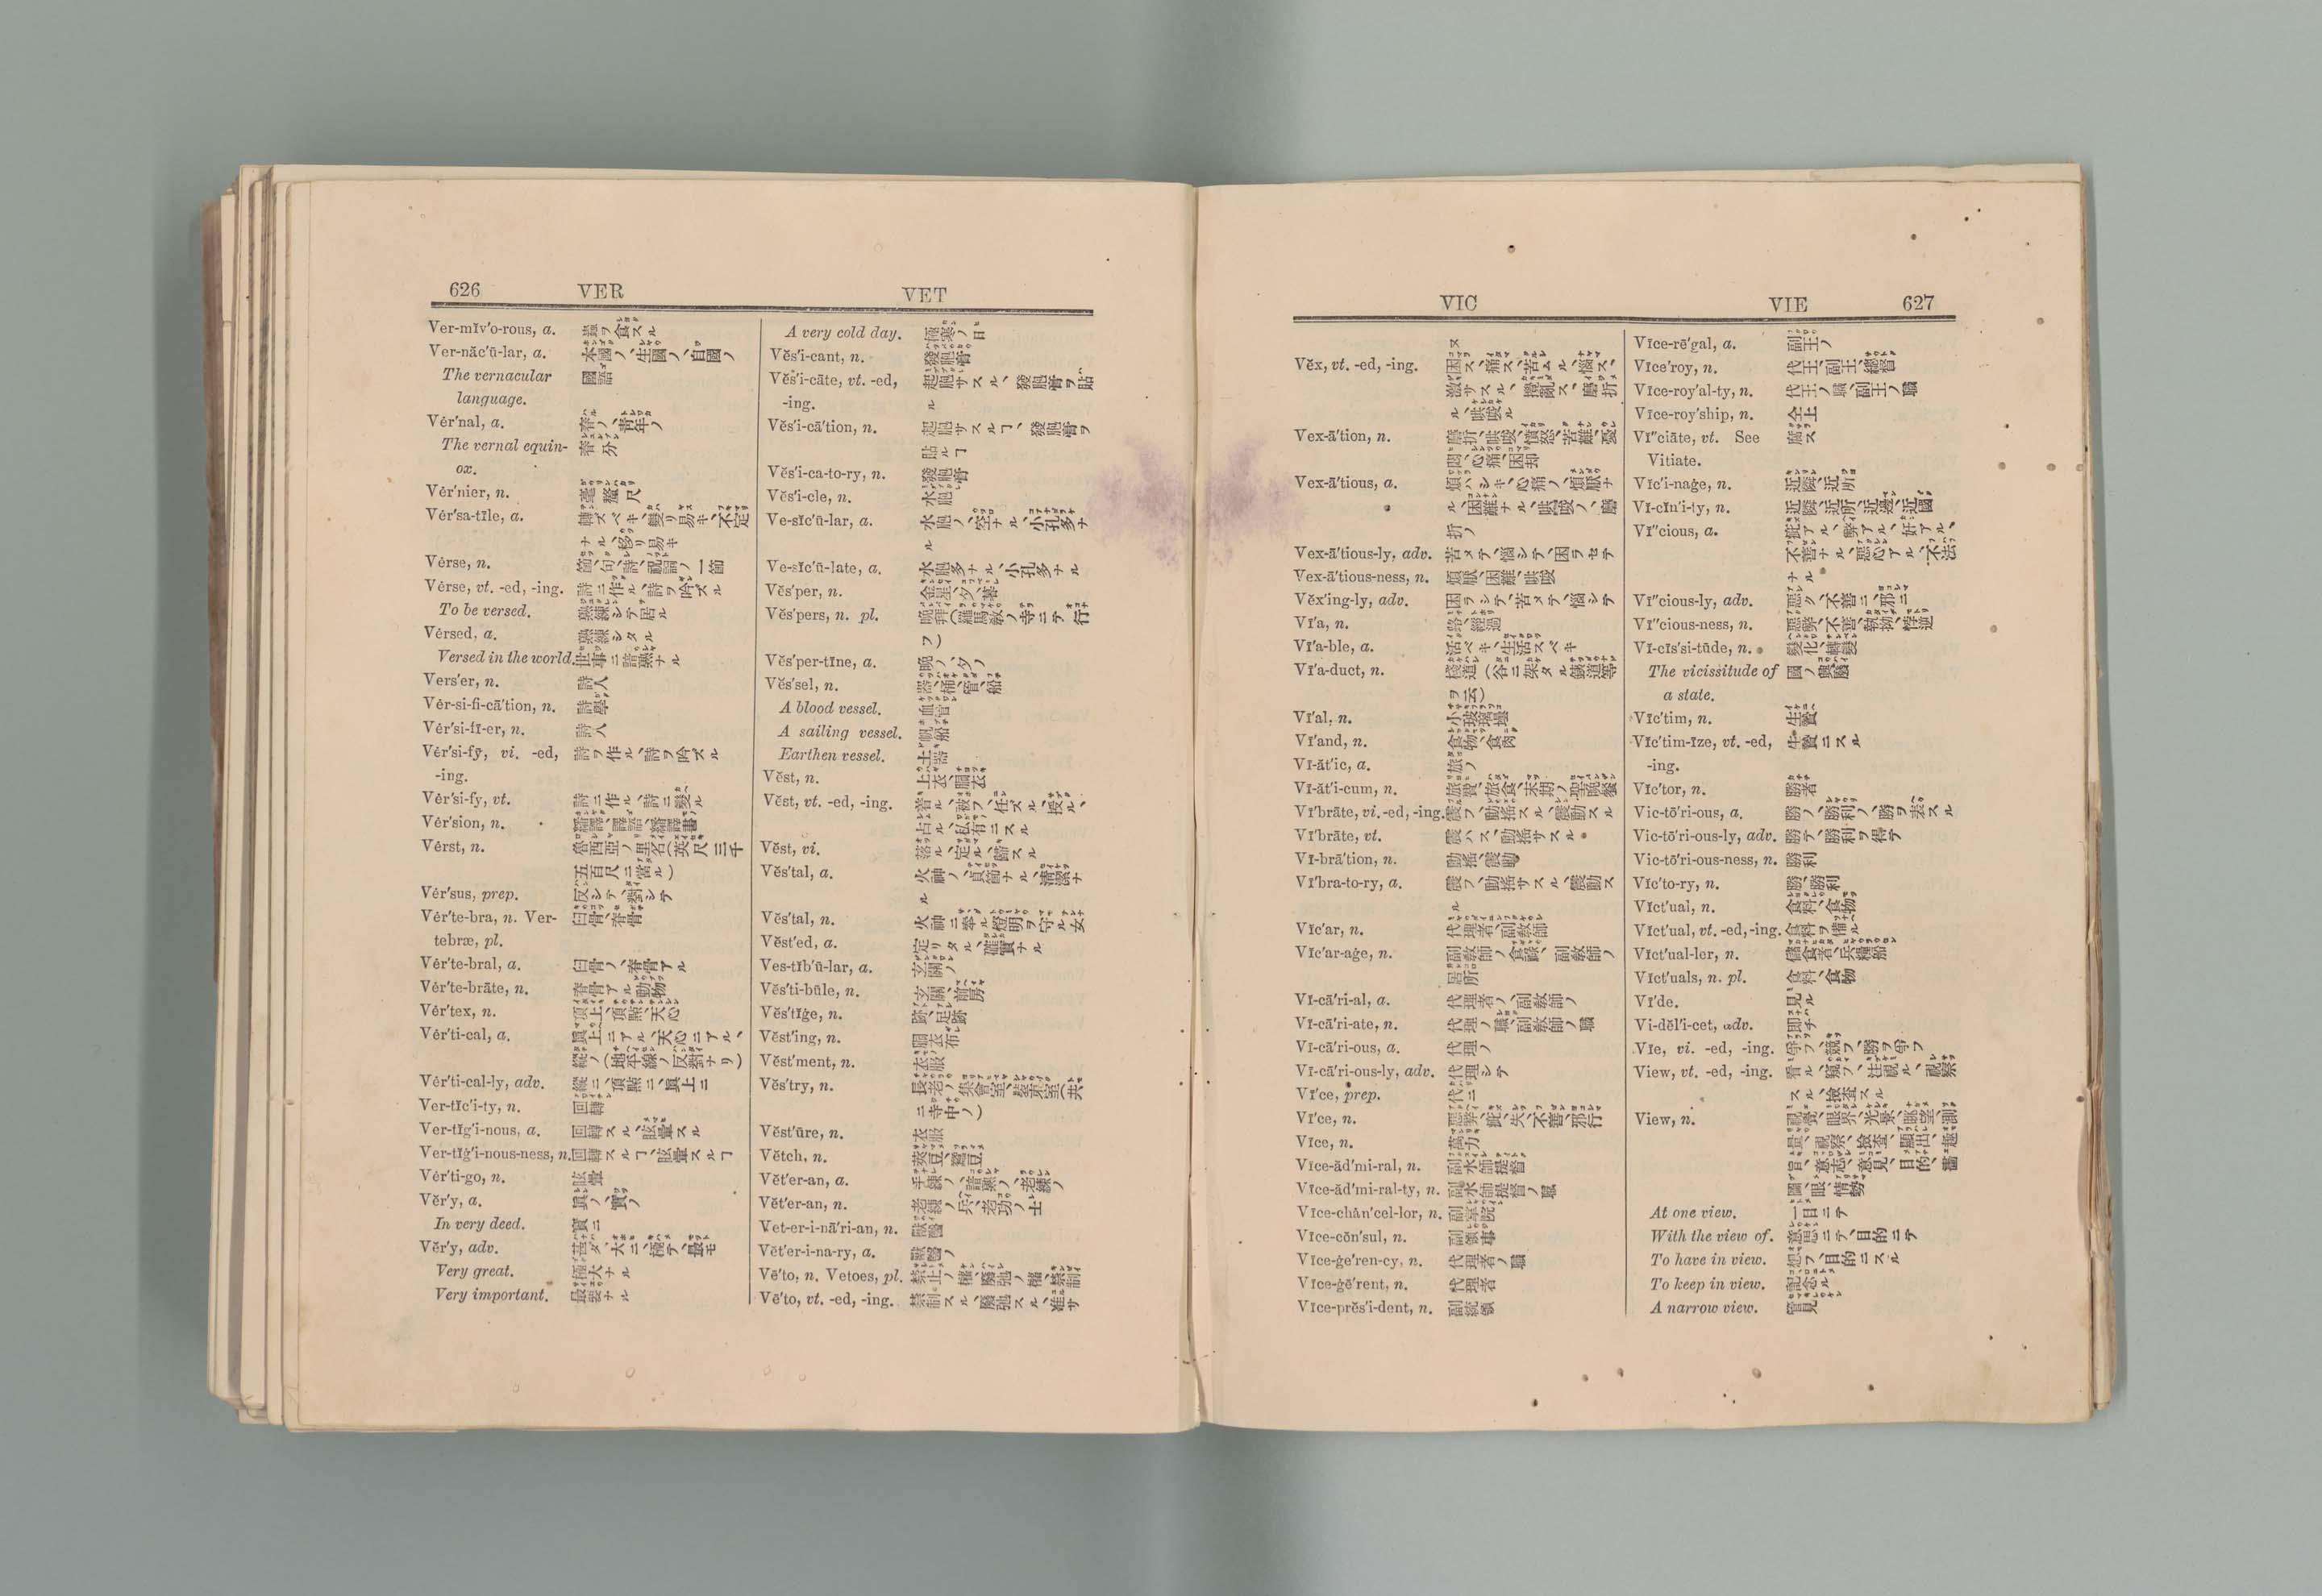 626 VER VET
Ver-mĭv′o-rous, a. 蟲ヲ食スル
Ver-năc′ū-lar, a. 本國ノ、生國ノ、自國ノ
The vernacular 國語
language.
Vẽr′nal, a. 春ノ、青年ノ
The vernal equin- 春分
ox.
Vẽr′nier, n. 毫釐尺
Vẽr′sa-tĭle, a. 轉ズベキ、變リ易キ、不定
ナル、移リ易キ
Vẽrse, n. 節、句、詩、祝詞ノ一節
Vẽrse, vt. -ed, -ing. 詩ニ作ル、詩ヲ吟ズル
To be versed. 熟練シテ居ル
Vẽrsed, a. 熟練シタル
Versed in the world. 世事ニ諳熟ナル
Vers′er, n. 詩人
Vẽr-si-fi-cā′tion, n. 詩學
Vẽr′si-fī-er, n. 詩人
Vẽr′si-fȳ, vi. -ed, 詩ヲ作ル、詩ヲ吟ズル
-ing.
Vẽr′si-fy, vt. 詩ニ作ル、詩ニ變ル
Vẽr′sion, n. 飜譯、譯語、飜譯書
Vẽrst, n. 魯西亞ノ里名(英尺三千
五百尺ニ當ル)
Vẽr′sus, prep. 反シテ、對シテ
Vẽr′te-bra, n. Ver- 臼骨、脊骨
tebræ, pl.
Vẽr′te-bral, a. 臼骨ノ、脊骨アル
Vẽr′te-brāte, n. 脊骨アル動物
Vẽr′tex, n. 頂上、頂點、天心
Vẽr′ti-cal, a. 眞上ニアル、天心ニアル、
縱ノ(地平線ノ反對ナリ)
Vẽr′ti-cal-ly, adv. 縱ニ、頂點ニ、眞上ニ
Ver-tĭc′i-ty, n. 回轉
Ver-tĭg′i-nous, a. 回轉スル、眩暈スル
Ver-tĭg′i-nous-ness, n. 回轉スルヿ、眩暈スルヿ
Vẽr′ti-go, n. 眩暈
Vĕr′y, a. 眞ノ、實ノ
In very deed. 實ニ
Vĕr′y, adv. 甚ダ、大ニ、極テ、最モ
Very great. 極大ナル
Very important. 最要ナル
A very cold day. 極寒ノ日
Vĕs′i-cant, n. 發胞膏
Vĕs′i-cāte, vt. -ed, 起胞サスル、發胞膏ヲ貼
-ing. ル
Vĕs′i-cā′tion, n. 起胞サスルヿ、發胞膏ヲ
貼ルヿ
Vĕs′i-ca-to-ry, n. 發胞膏
Vĕs′i-cle, n. 水胞
Ve-sĭc′ū-lar, a. 水胞ノ、空ナル、小孔多ナ
ル
Ve-sĭc′ū-late, a. 水胞多ナル、小孔多ナル
Vĕs′per, n. 金星、夕、暮
Vĕs′pers, n. pl. 晩拜(羅馬敎ノ寺ニテ行
フ)
Vĕs′per-tīne, a. 晩ノ、夕ノ
Vĕs′sel, n. 器、桶、管、船
A blood vessel. 血管
A sailing vessel. 帆船
Earthen vessel. 土器
Vĕst, n. 上衣、胴衣
Vĕst, vt. -ed, -ing. 着ル、被フ、任ズル、授ル、
占ル、私有ニスル
Vĕst, vi. 落ル、定ル、歸スル
Vĕs′tal, a. 火神ノ、貞節ナル、清潔ナ
ル
Vĕs′tal, n. 火神ニ奉ル燈明ヲ守ル女
Vĕst′ed, a. 定リタル、確實ナル
Ves-tĭb′ū-lar, a. 玄關ノ
Vĕs′ti-būle, n. 玄關、前房
Vĕs′tĭġe, n. 跡、足跡
Vĕst′ing, n. 胴衣布
Vĕst′ment, n. 衣服
Vĕs′try, n. 長老ノ集會室、裝束室(共
ニ寺中ノ)
Vĕst′ūre, n. 衣服
Vĕtch, n. 葵豆、鶯豆
Vĕt′er-an, a. 手練ノ、諳熟ノ、老練ノ
Vĕt′er-an, n. 老練ノ兵、老功ノ士
Vet-er-i-nā′ri-an, n. 獸醫
Vĕt′er-i-na-ry, a. 獸醫ノ
Vē′to, n. Vetoes, pl. 禁止ノ權、廢弛ノ權、禁制
Vē′to, vt. -ed, -ing. 禁制スル、廢弛スル、准サ
VIC VIE 627
ヌ
Vĕx, vt. -ed, -ing. 困ス、痛ス、苦ムル、惱ス、
激サスル、擾亂ス、磨折
ル、哄唆ル
Vex-ā′tion, n. 磨折、哄唆、憤怒、苦難、憂
悶、心痛、困却
Vex-ā′tious, a. 煩ハシキ、心痛ノ、煩厭ナ
ル、困難ナル、哄唆ノ、磨
折ノ
Vex-ā′tious-ly, adv. 苦メテ、惱シテ、困ラセテ
Vex-ā′tious-ness, n. 煩厭、困難、哄唆
Vĕx′ing-ly, adv. 困ラシテ、苦メテ、惱シテ
Vī′a, n. 路、經過
Vī′a-ble, a. 活ベキ、生活スベキ
Vī′a-duct, n. 棧道(谷ニ架タル鐵道等
ヲ云)
Vī′al, n. 小玻璃壜
Vī′and, n. 食物、食肉
Vī-ăt′ic, a. 旅ノ
Vī-ăt′i-cum, n. 旅費、旅食、末期ノ聖晩餐
Vī′brāte, vi. -ed, -ing. 震フ、動搖スル、震動スル
Vī′brāte, vt. 震ハス、動搖サスル
Vī-brā′tion, n. 動搖、震動
Vī′bra-to-ry, a. 震フ、動搖サスル、震動ス
ル
Vĭc′ar, n. 代理者、副敎師
Vĭc′ar-aġe, n. 副敎師ノ食錄、副敎師ノ
居所
Vī-cā′ri-al, a. 代理者ノ、副敎師ノ
Vī-cā′ri-ate, n. 代理ノ職、副敎師ノ職
Vī-cā′ri-ous, a. 代理ノ
Vī-cā′ri-ous-ly, adv. 代理シテ
Vī′ce, prep. 代ニ
Vī′ce, n. 惡弊、疵、失、不善、邪行
Vīce, n. 萬力
Vīce-ăd′mi-ral, n. 副水師提督
Vīce-ăd′mi-ral-ty, n. 副水師提督ノ職
Vīce-chȧn′cel-lor, n. 副掌院
Vīce-cŏn′sul, n. 副領事
Vīce-ġe′ren-cy, n. 代理者ノ職
Vīce-ġē′rent, n. 代理者
Vīce-prĕs′i-dent, n. 副統領
Vīce-rē′gal, a. 副王ノ
Vīce′roy, n. 代王、副王、總督
Vīce-roy′al-ty, n. 代王ノ職、副王ノ職
Vīce-roy′ship, n. 仝上
Vĭ″ciāte, vt. See 腐ス
Vitiate.
Vĭc′i-naġe, n. 近隣、近所
Vī-cĭn′i-ty, n. 近隣、近所、近邊、近國
Vĭ″cious, a. 疵アル、弊アル、奸アル、
不善ナル、惡心アル、不法
ナル
Vĭ″cious-ly, adv. 惡ク、不善ニ、邪ニ
Vĭ″cious-ness, n. 惡弊、不善、執拗、悖逆
Vī-cĭs′si-tūde, n. 變化、轉變
The vicissitude of 國ノ興廢
a state.
Vĭc′tim, n. 生贄
Vĭc′tim-īze, vt. -ed, 生贄ニスル
-ing.
Vĭc′tor, n. 勝者
Vic-tō′ri-ous, a. 勝ノ、勝利ノ、勝ヲ表スル
Vic-tō′ri-ous-ly, adv. 勝テ、勝利ヲ得テ
Vic-tō′ri-ous-ness, n. 勝利
Vĭc′to-ry, n. 勝、勝利
Vĭct′ual, n. 食料、食物
Vĭct′ual, vt. -ed, -ing. 食料ヲ備ル
Vĭct′ual-ler, n. 儲食者、兵糧船
Vĭct′uals, n. pl. 食料、食物
Vī′de. 見ル
Vi-dĕl′i-cet, adv. 即チ
Vīe, vi. -ed, -ing. 爭フ、競フ、勝ヲ爭フ
View, vt. -ed, -ing. 看ル、窺フ、注視ル、視察
スル、撿査スル
View, n. 視覺、眼界、光景、眺望、測
量、視察、撿査、顯出、趣
旨、意志、意見、目的、畵
圖、眼、情勢
At one view. 一目ニテ
With the view of. 意思ニテ、目的ニテ
To have in view. 想フ、目的ニスル
To keep in view. 記念ル
A narrow view. 管見